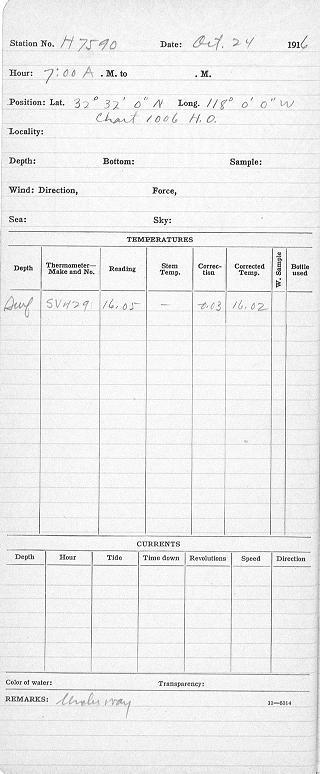 Station No. H7590 Date: Oct. 24 1916
Hour: 7:00 A. M. to . M.
Position: Lat. 32° 32' 0" N Long. 118° 0' 0" W
Chart 1006 H.O.
Locality:
Depth: Bottom: Sample:
Wind: Direction, Force,
Sea: Sky:
TEMPERATURES
Depth Thermometer—Make and No. Reading Stem Temp. Correc-tion Corrected Temp. W. Sample Bottle used
Surf SV429 16.05 — -0.03 16.02
CURRENTS
Depth Hour Tide Time down Revolutions Speed Direction
Color of water: Transparency:
REMARKS: Underway 11—6314